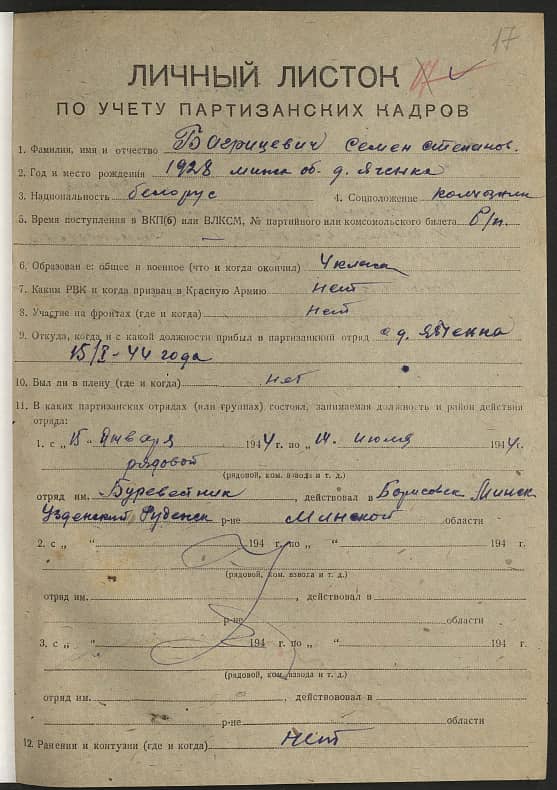 17
ЛИЧНЫЙ ЛИСТОК
ПО УЧЕТУ ПАРТИЗАНСКИХ КАДРОВ
1. Фамилия, имя и отчество Багрицевич Семен Степанов.
2. Год и место рождения 1928 минск об. д. Яченка
3. Национальность белорус 4. Соцположение колхозник
5. Время поступления в ВКП(б) или ВЛКСМ, № партийного или комсомольского билета б/п.
6. Образован е: общее и военное (что и когда окончил) 4 класа
7. Каким РВК и когда призван в Красную Армию нет
8. Участие на фронтах (где и когда) нет
9. Откуда, когда и с какой должности прибыл в партизанкий отряд д. Яченка
15/I-44 года
10. Был ли в плену (где и когда) нет
11. В каких партизанских отрядах (или группах) состоял, занимаемая должность и район действия
отряда:
1. с „ 15 " Января 1944 г. по „ 14. июля 1944 г.
рядовой
(рядовой, ком. взвода и т. д.)
отряд им. Буревестник, действовал в Борисовск Минск
Узденский Руденск р-не Минской области
2. с „ " 194 г. по „ " 194 г.
(рядовой, ком. взвода и т. д.)
отряд им. , действовал в
р-не области
3. с „ " 194 г. по „ " 194 г.
(рядовой, ком. взвода и т. д.)
отряд им. , действововал в
р-не области
12. Ранения и контузии (где и когда) нет